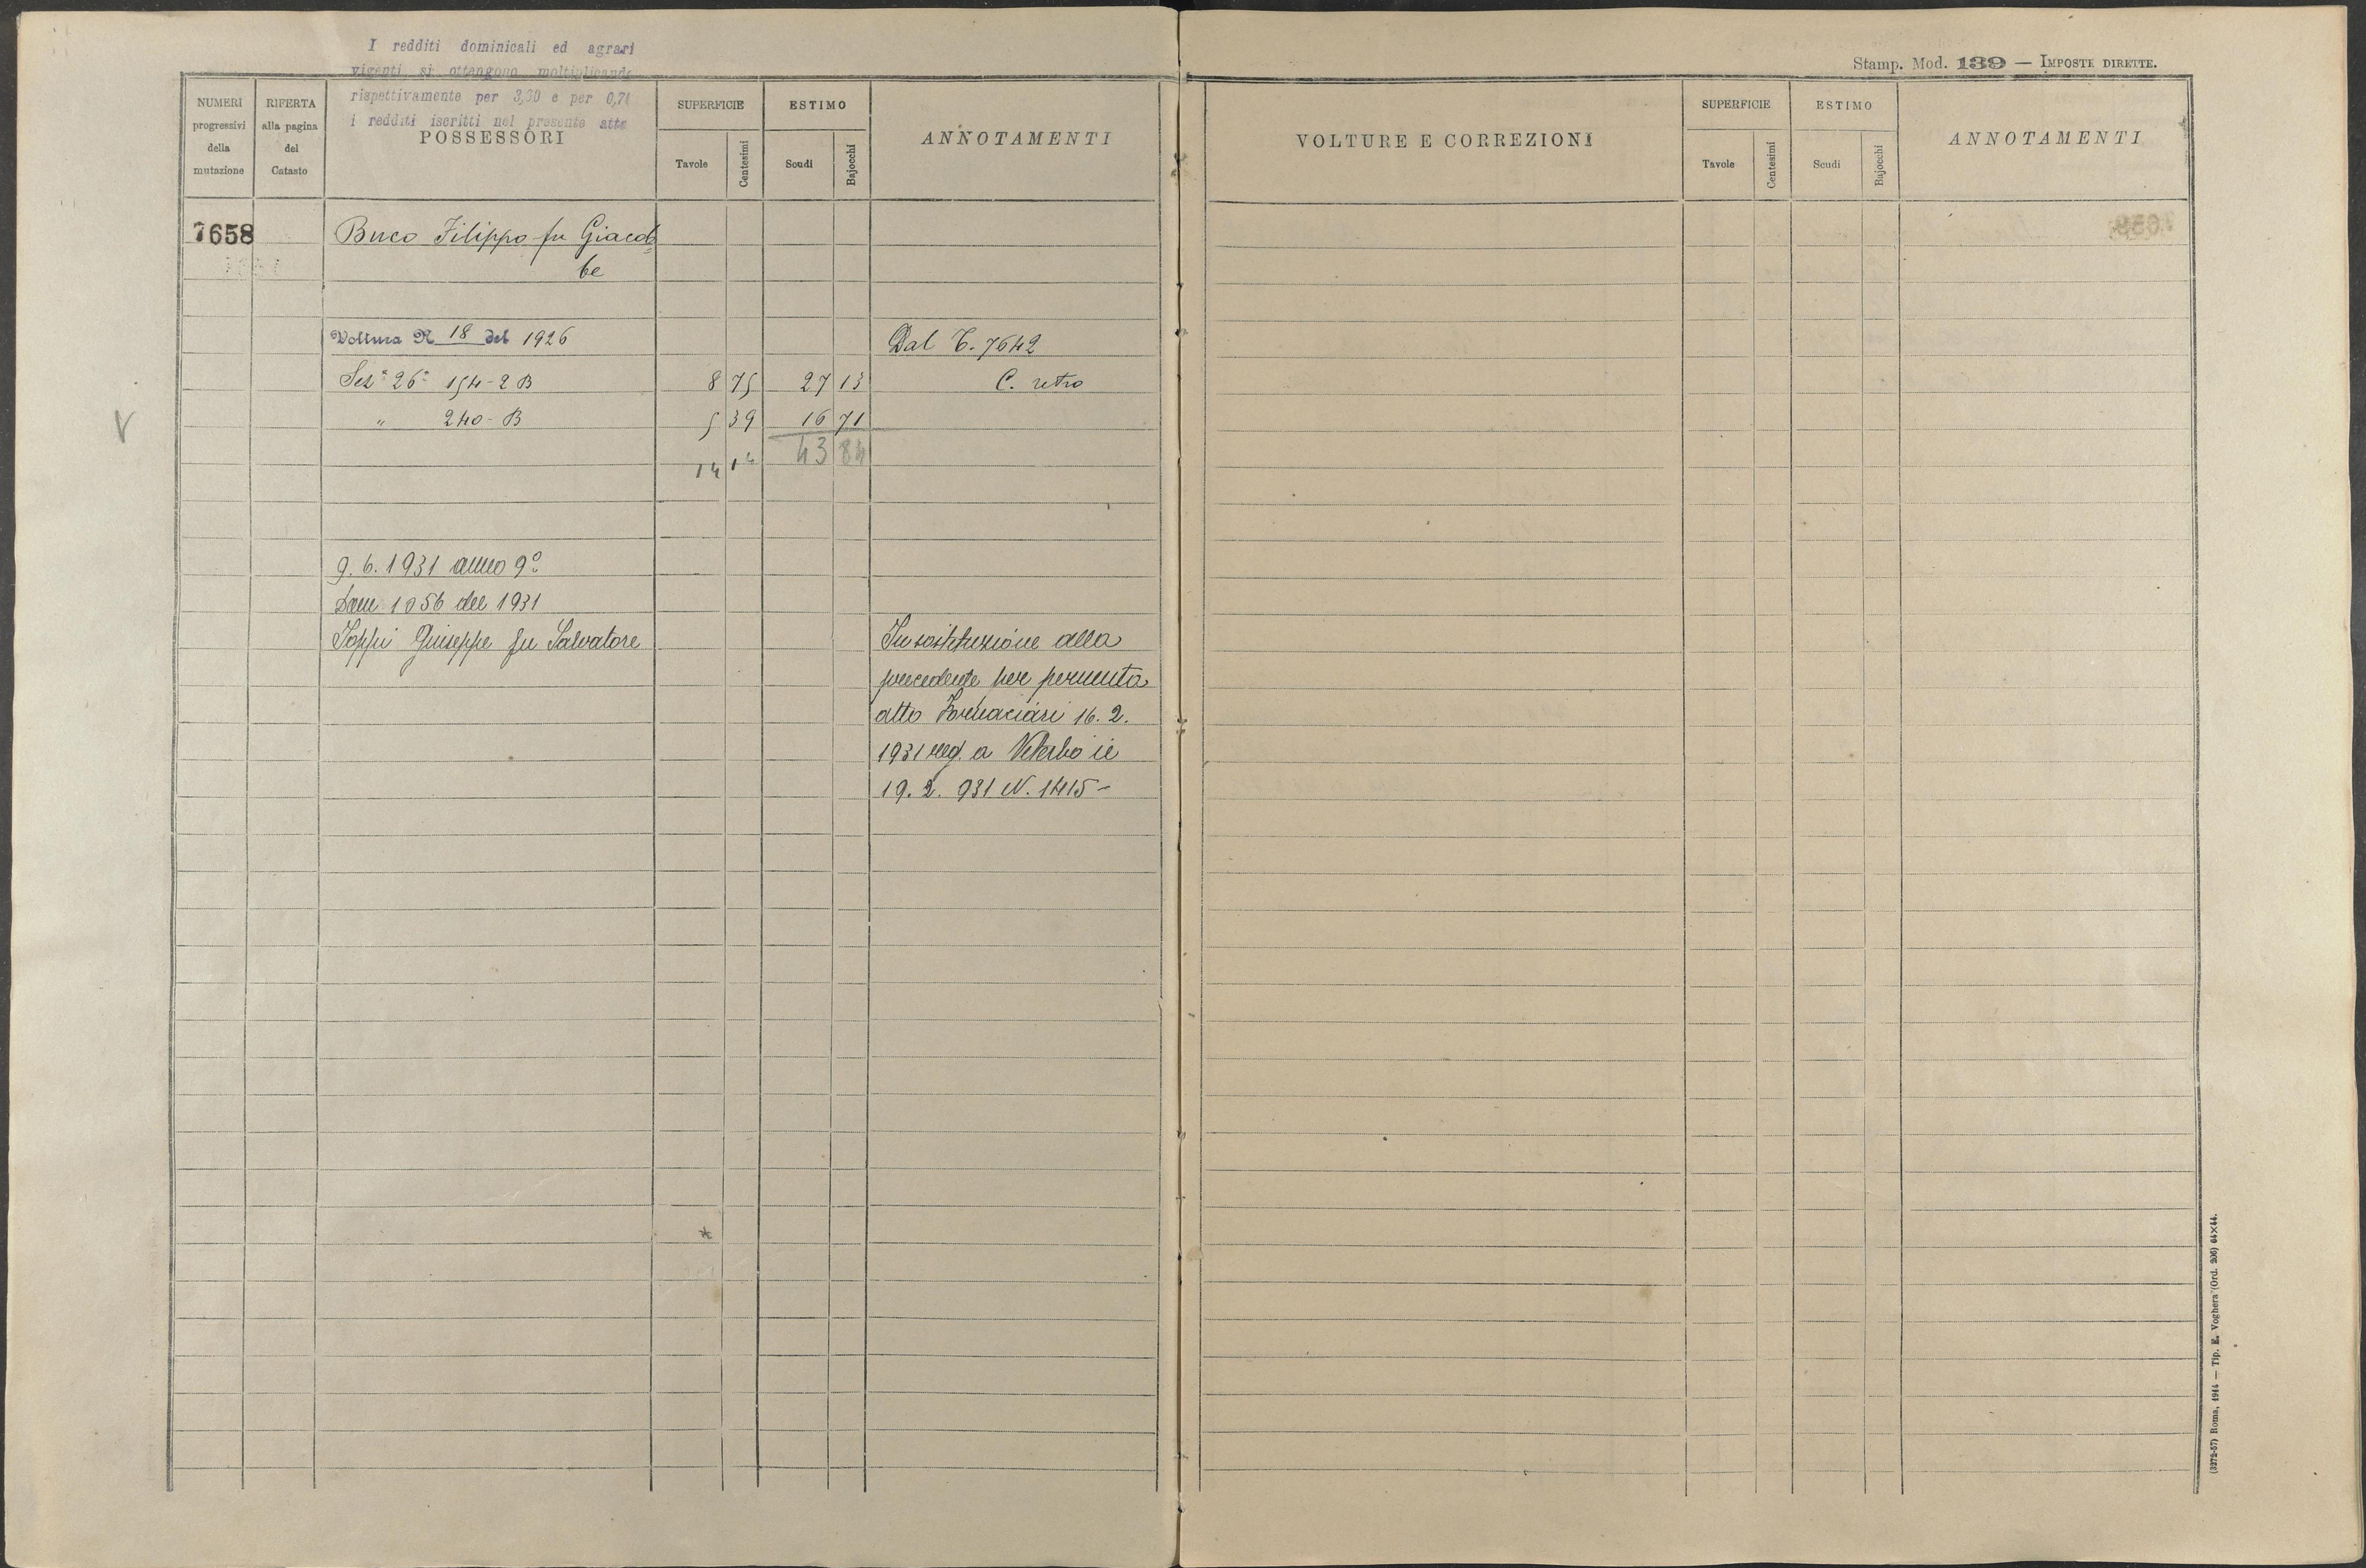 I redditi dominicali ed agrari
vigenti si ottengono moltiplicando
rispettivamente per 3,30 e per 0,74
i redditi iscritti nel presente atto
Stamp. Mod. 139 — IMPOSTE DIRETTE.
NUMERI progressivi della mutazione
RIFERTA alla pagina del Catasto
POSSESSORI
SUPERFICIE
Tavole
Centesimi
ESTIMO
Scudi
Bajocchi
ANNOTAMENTI
VOLTURE E CORREZIONI
SUPERFICIE
Tavole
Centesimi
ESTIMO
Scudi
Bajocchi
ANNOTAMENTI
7658 Buco Filippo fu Giaco=
be
Voltura N 18 del 1926 Dal C. 7642
Sez.e 26a 154-2 B 8 75 27 13 C. retro
" 240-B 5 39 16 71
V
14 14 43 84
9. 6. 1931 anno 9º
Dom 1056 del 1931
Toppi Giuseppe fu Salvatore In sostituzione alla
precedente per permuta
atto Fornaciari 16. 2.
1931 reg. a Viterbo il
19. 2. 931 N. 1415 -
(3272-57) Roma, 1914 — Tip. E. Voghera (Ord. 206) 64×44.